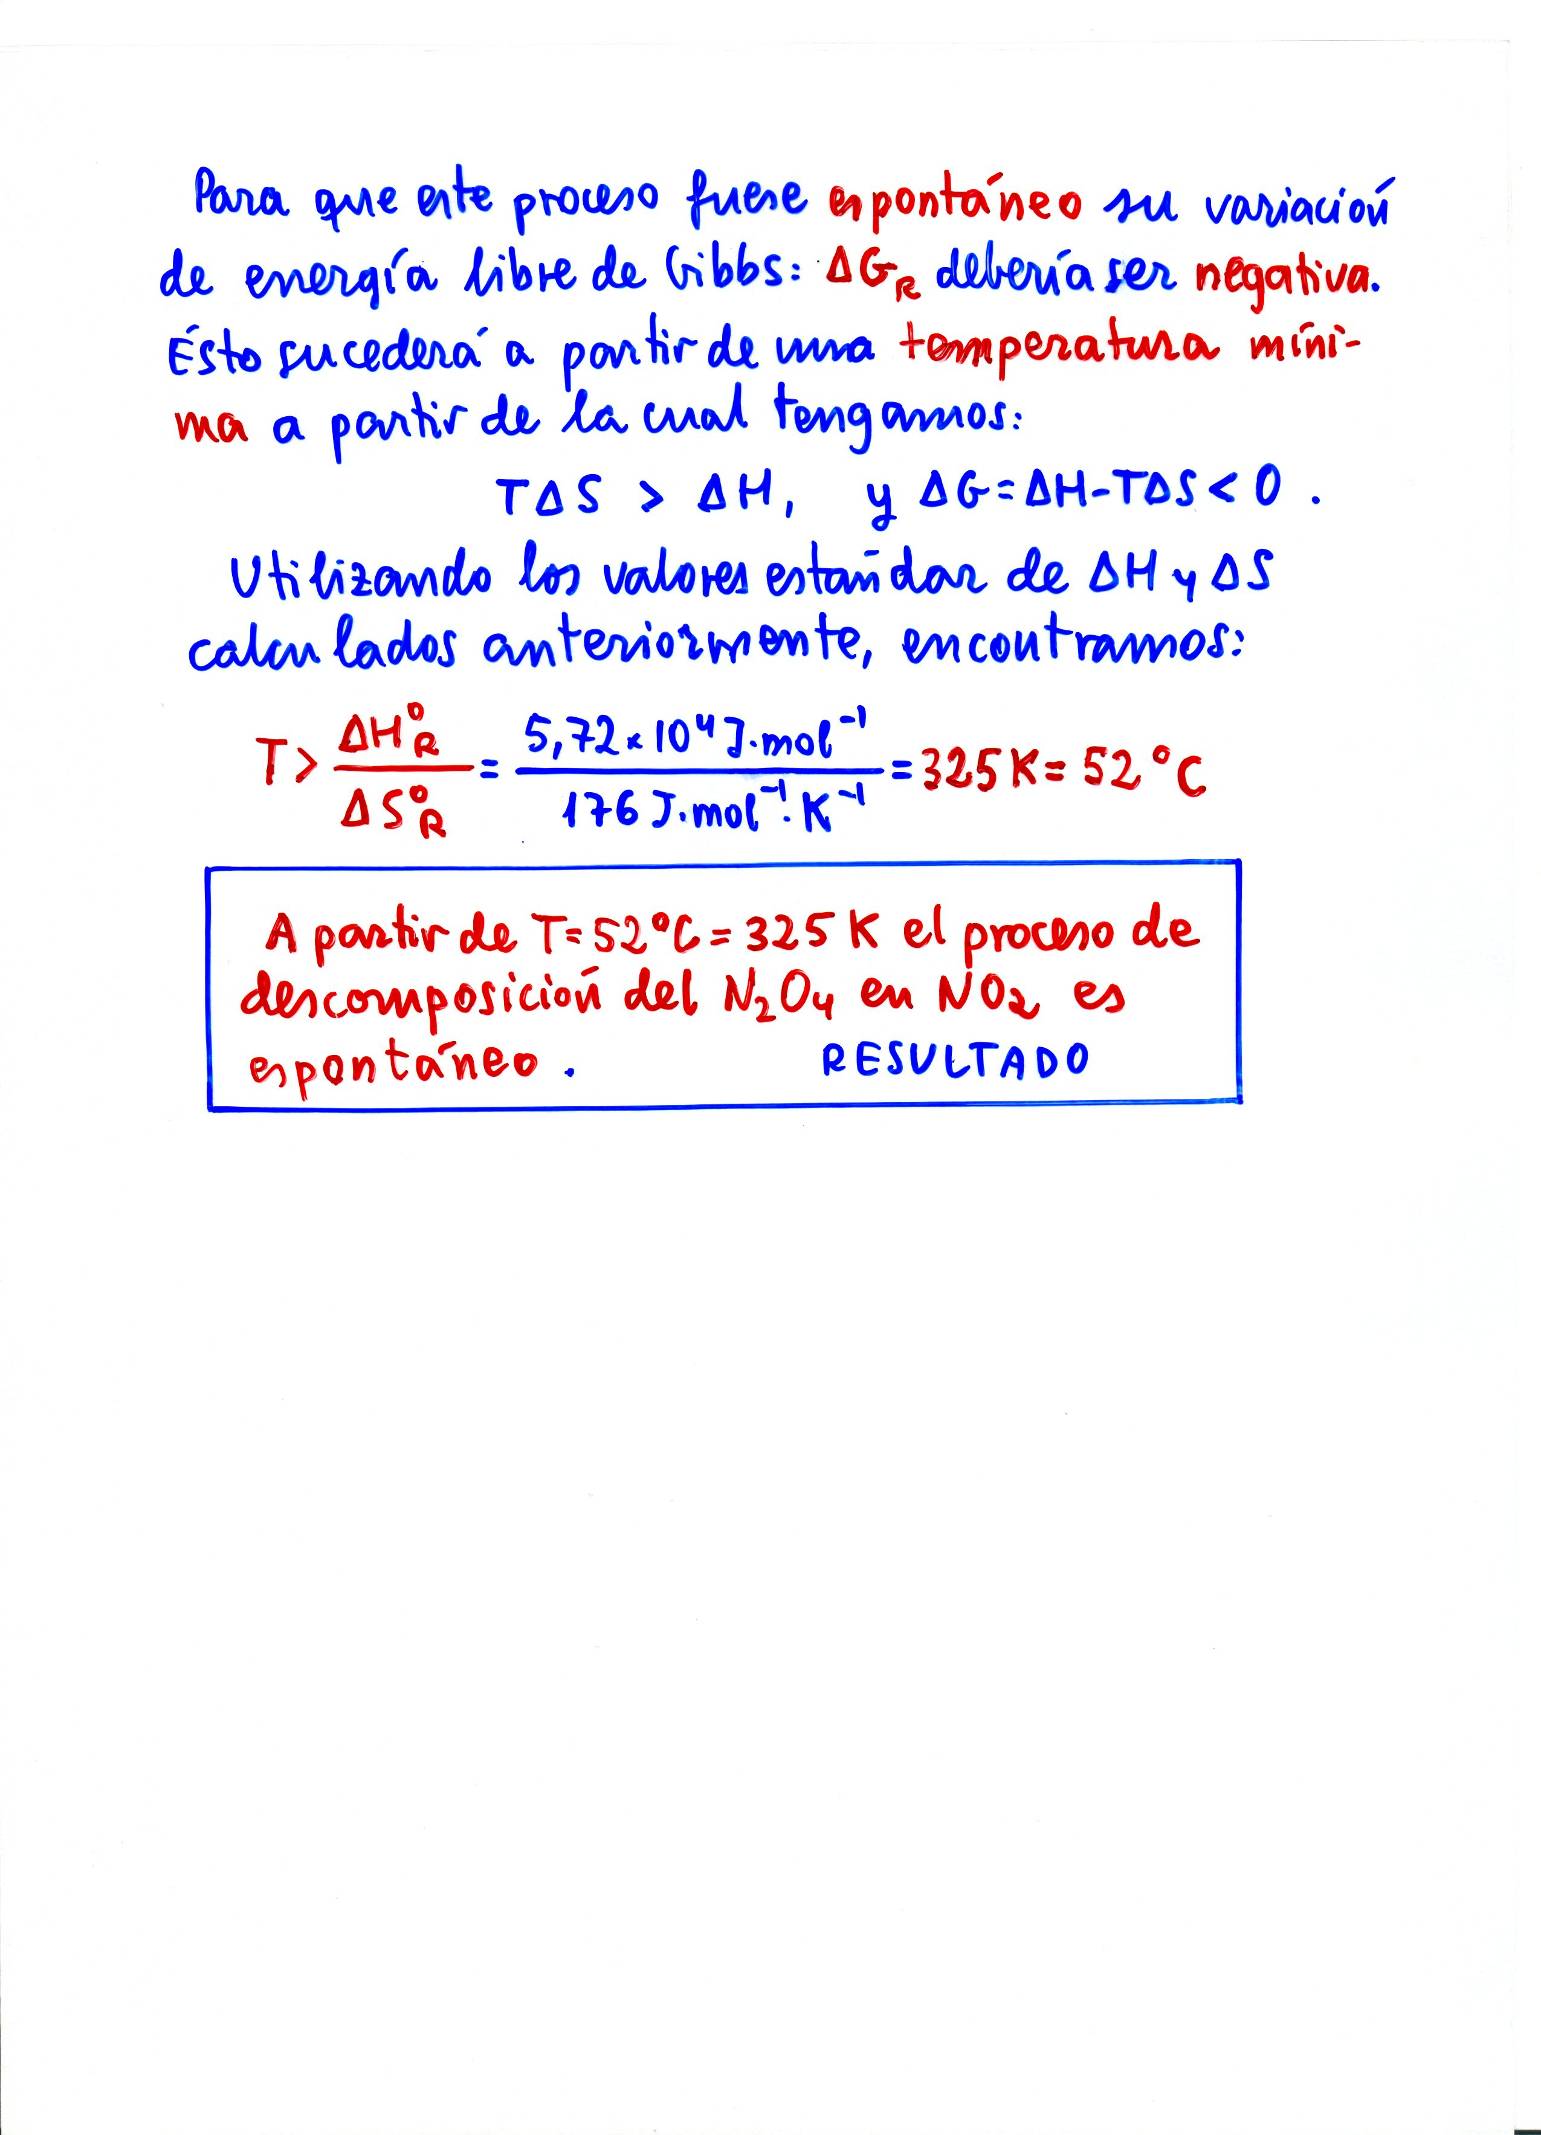 Para que este proceso fuese espontáneo su variación
de energía libre de Gibbs: ΔG_R debería ser negativa.
Ésto sucederá a partir de una temperatura míni-
ma a partir de la cual tengamos:
TΔS > ΔH, y ΔG=ΔH-TΔS<0.
Utilizando los valores estándar de ΔH y ΔS
calculados anteriormente, encontramos:
T> ΔH°_R / ΔS°_R = 5,72×10⁴ J·mol⁻¹ / 176 J·mol⁻¹·K⁻¹ = 325 K = 52 °C
A partir de T=52°C = 325 K el proceso de
descomposición del N₂O₄ en NO₂ es
espontáneo. RESULTADO